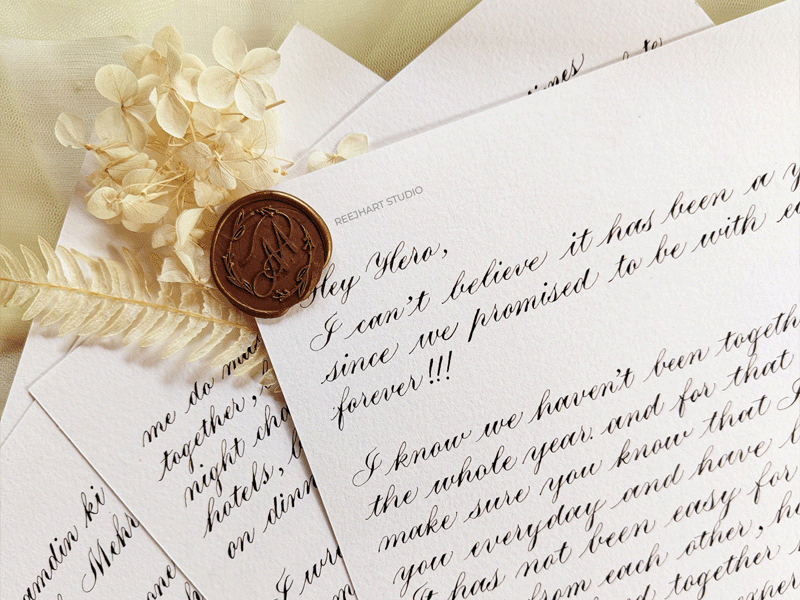 REEJHART STUDIO
Hey Hero,
I can't believe it has been a
since we promised to be with
forever!!!
I know we haven't been
the whole year. and for that
make sure you know that I
you everyday and have
It has not been easy for
from each other,
together
me do
together,
night
hotels,
on
I
ki